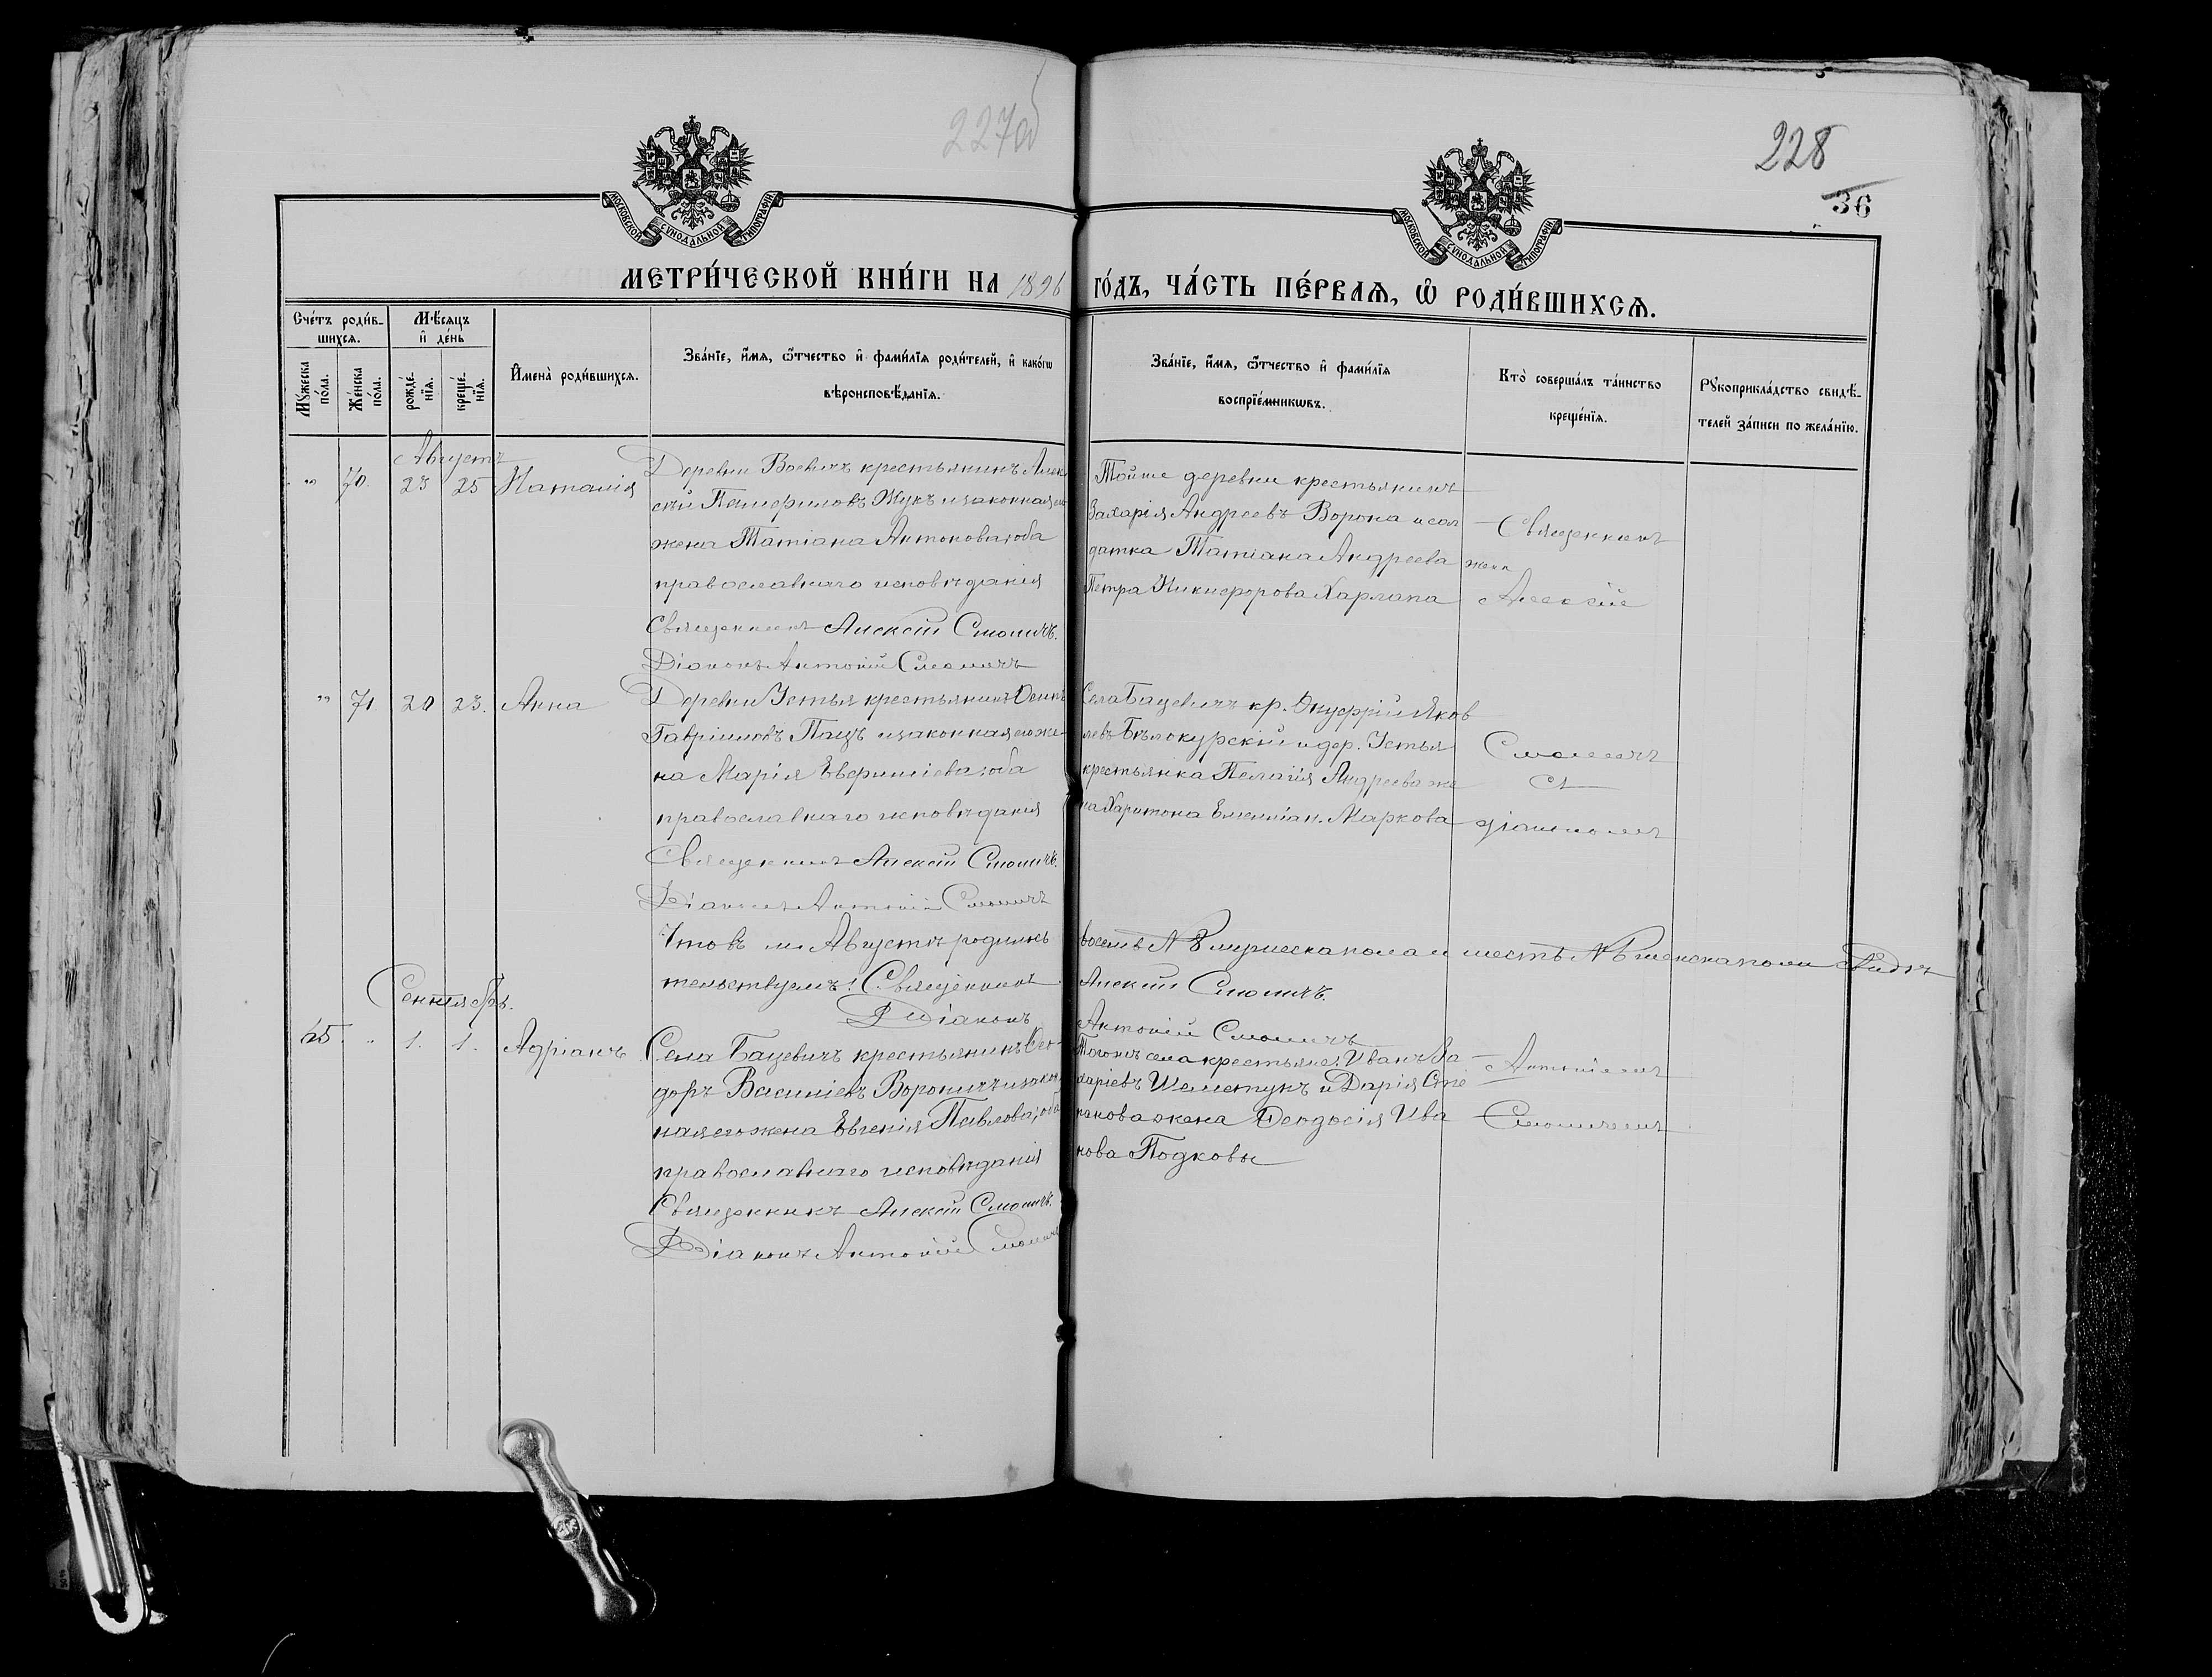 227об
228
36
МОСКОВСКОЙ СѴНОДАЛЬНОЙ ТИПОГРАФІИ
МОСКОВСКОЙ СѴНОДАЛЬНОЙ ТИПОГРАФІИ
МЕТРИ́ЧЕСКОЙ КНИ́ГИ НА 1896 ГО́ДЪ, ЧА́СТЬ ПЕ́РВАѦ, Ѽ РОДИ́ВШИХСѦ.
Сче́тъ роди́в-
шихсѧ.
Мѣ́сѧцъ
и҆ де́нь
Мꙋ́жеска
по́ла.
Же́нска
по́ла.
рожде́-
нїѧ.
креще́-
нїѧ.
И҆мена̀ роди́вшихсѧ.
Зва́нїе, и҆́мѧ, ѻ҆́тчество и҆ фами́лїѧ роди́телей, и҆ како́гѡ
вѣроисповѣ́данїѧ.
Зва́нїе, и҆́мѧ, ѻ҆́тчество и҆ фами́лїѧ
воспрїе́мникѡвъ.
Кто̀ соверша́лъ та́инство
креще́нїѧ.
Рꙋкоприкла́дство свидѣ́-
телей за́писи по жела́нїю.
Августъ
" 70. 23 25 Наталія
Деревни Воевичъ крестьянинъ Алек
сѣй Памфиловъ Жукъ и законная его
жена Татіана Антонова; оба
православнаго исповѣданія
Священникъ Алексій Смоличъ.
Діаконъ Антоній Смоличъ
Тойже деревни крестьянинъ
Захарія Андреевъ Ворона и сол
датка Татіана Андреева жена
Петра Никифорова Харлапа
Священникъ
Алексій
" 71 20 23. Анна
Деревни Устья крестьянинъ Осипъ
Гавріиловъ Пацъ и законная его же-
на Марія Евфиміева; оба
православнаго исповѣданія
Священникъ Алексій Смоличъ.
Діаконъ Антоній Смоличъ
Села Бацевичъ кр. Онуфрій Яков
левъ Бѣлокурскій и дер. Устья
крестьянка Пелагія Андреева же
на Харитона Емеліан. Маркова
Смоличъ
съ
діакономъ
Что въ м. Августѣ родилось восемь № 8 мужеска пола и шесть № 6 женска пола свидѣ
тельствуемъ: Священникъ Алексій Смоличъ.
Діаконъ Антоній Смоличъ
Сентябрь.
65. " 1. 1. Адріанъ
Села Бацевичъ крестьянинъ Ѳео-
доръ Василіевъ Вороничъ и закон
ная его жена Евгенія Павлова; оба
православнаго исповѣданія
Священникъ Алексій Смоличъ.
Діаконъ Антоній Смоличъ
Тогожъ села крестьяне: Иванъ За
харіевъ Шеметукъ и Дарія Сте
панова жена Ѳеодосія Ива
нова Подковы
Антоніемъ
Смоличемъ